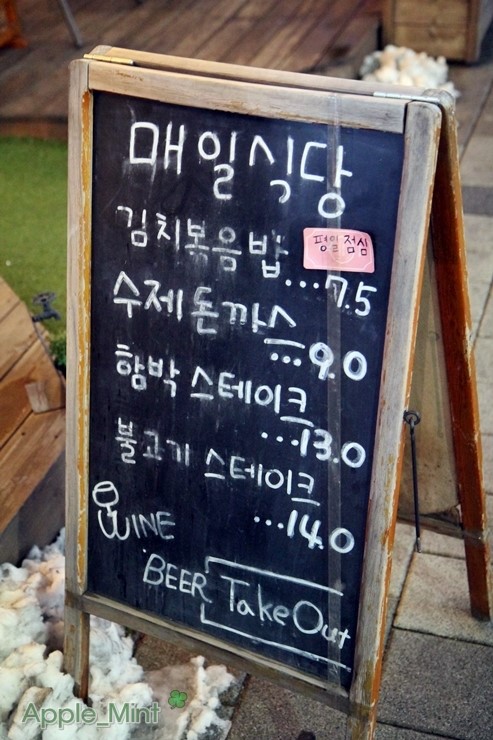 매일식당
김치볶음밥 평일점심
...7.5
수제돈까스
...9.0
함박 스테이크
...13.0
불고기 스테이크
...14.0
WINE
BEER Take Out
Apple_Mint